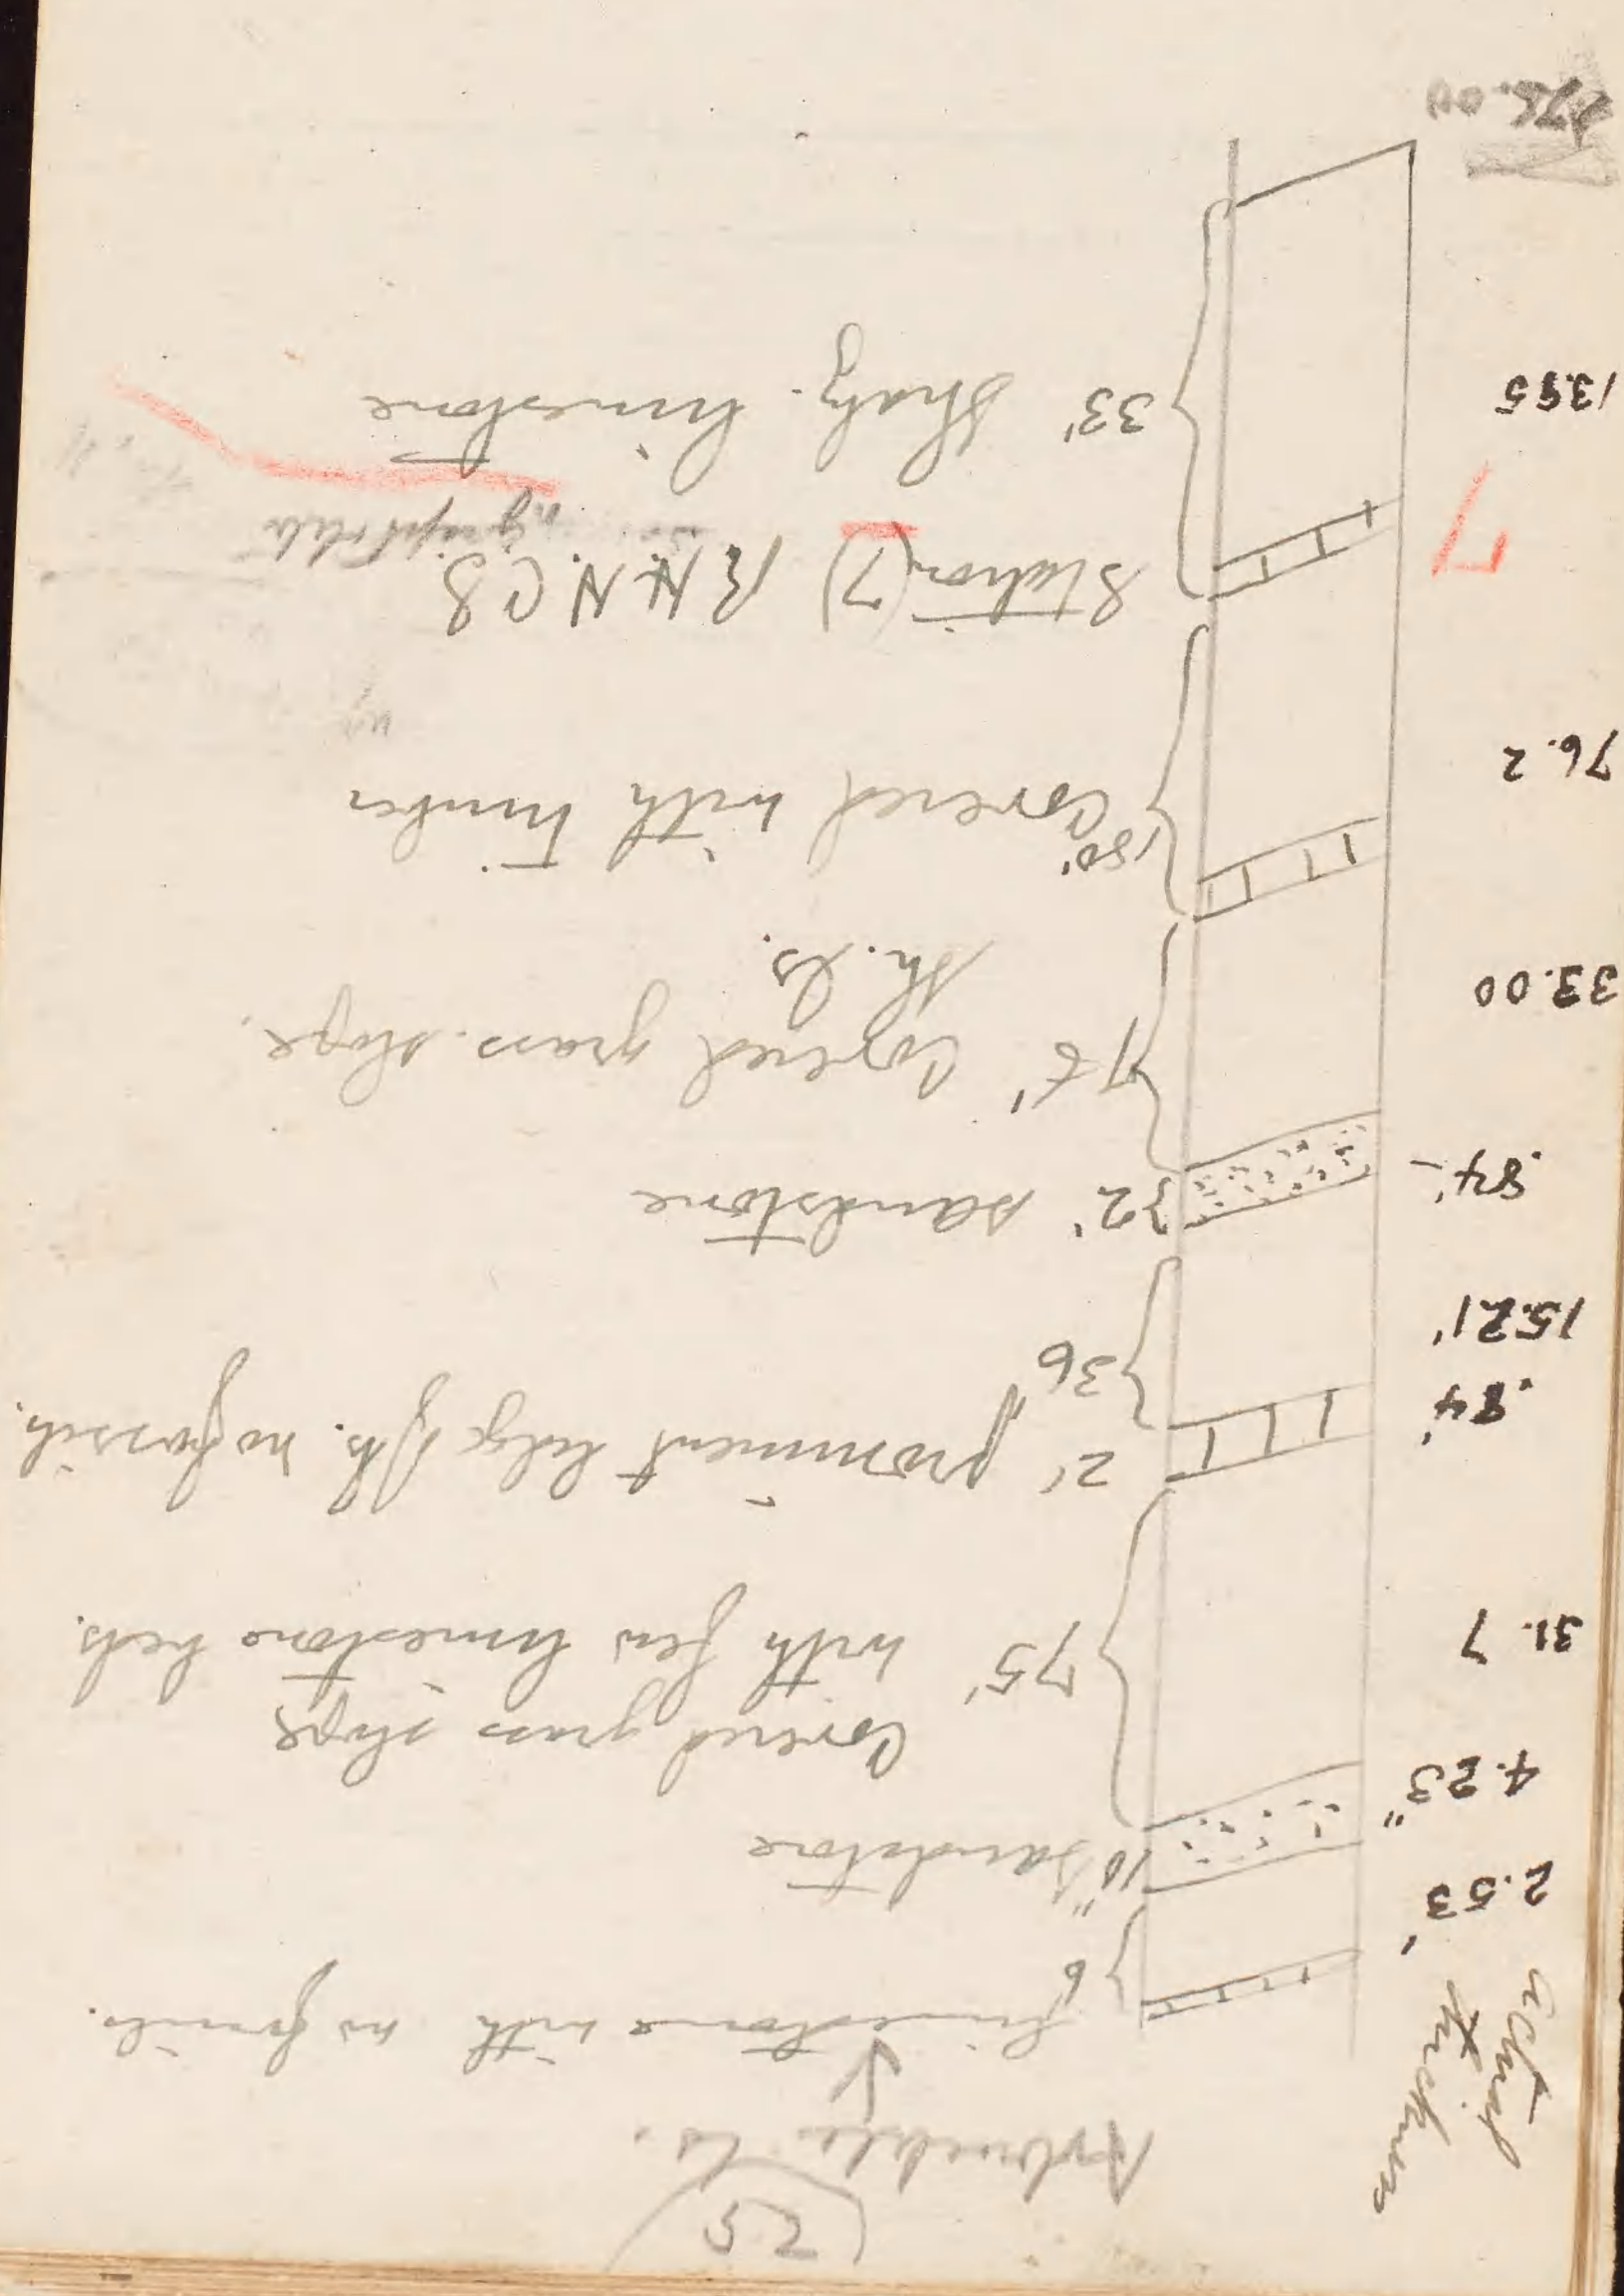 (25)
Ls.
actual
thickness
6 limestone with no fossils.
2.53'
10" sandstone
4.23"
Covered grass slope
75' with few limestone beds.
31.7
2' prominent ledge ls. no fossils.
.84'
36
15.21'
2' sandstone
.84'
78' Covered grass. slope.
sh. ls.
33.00
180' Covered with timber
76.2
Station (7) R.H.N. C8
7
33' Shaly. limestone
13.95